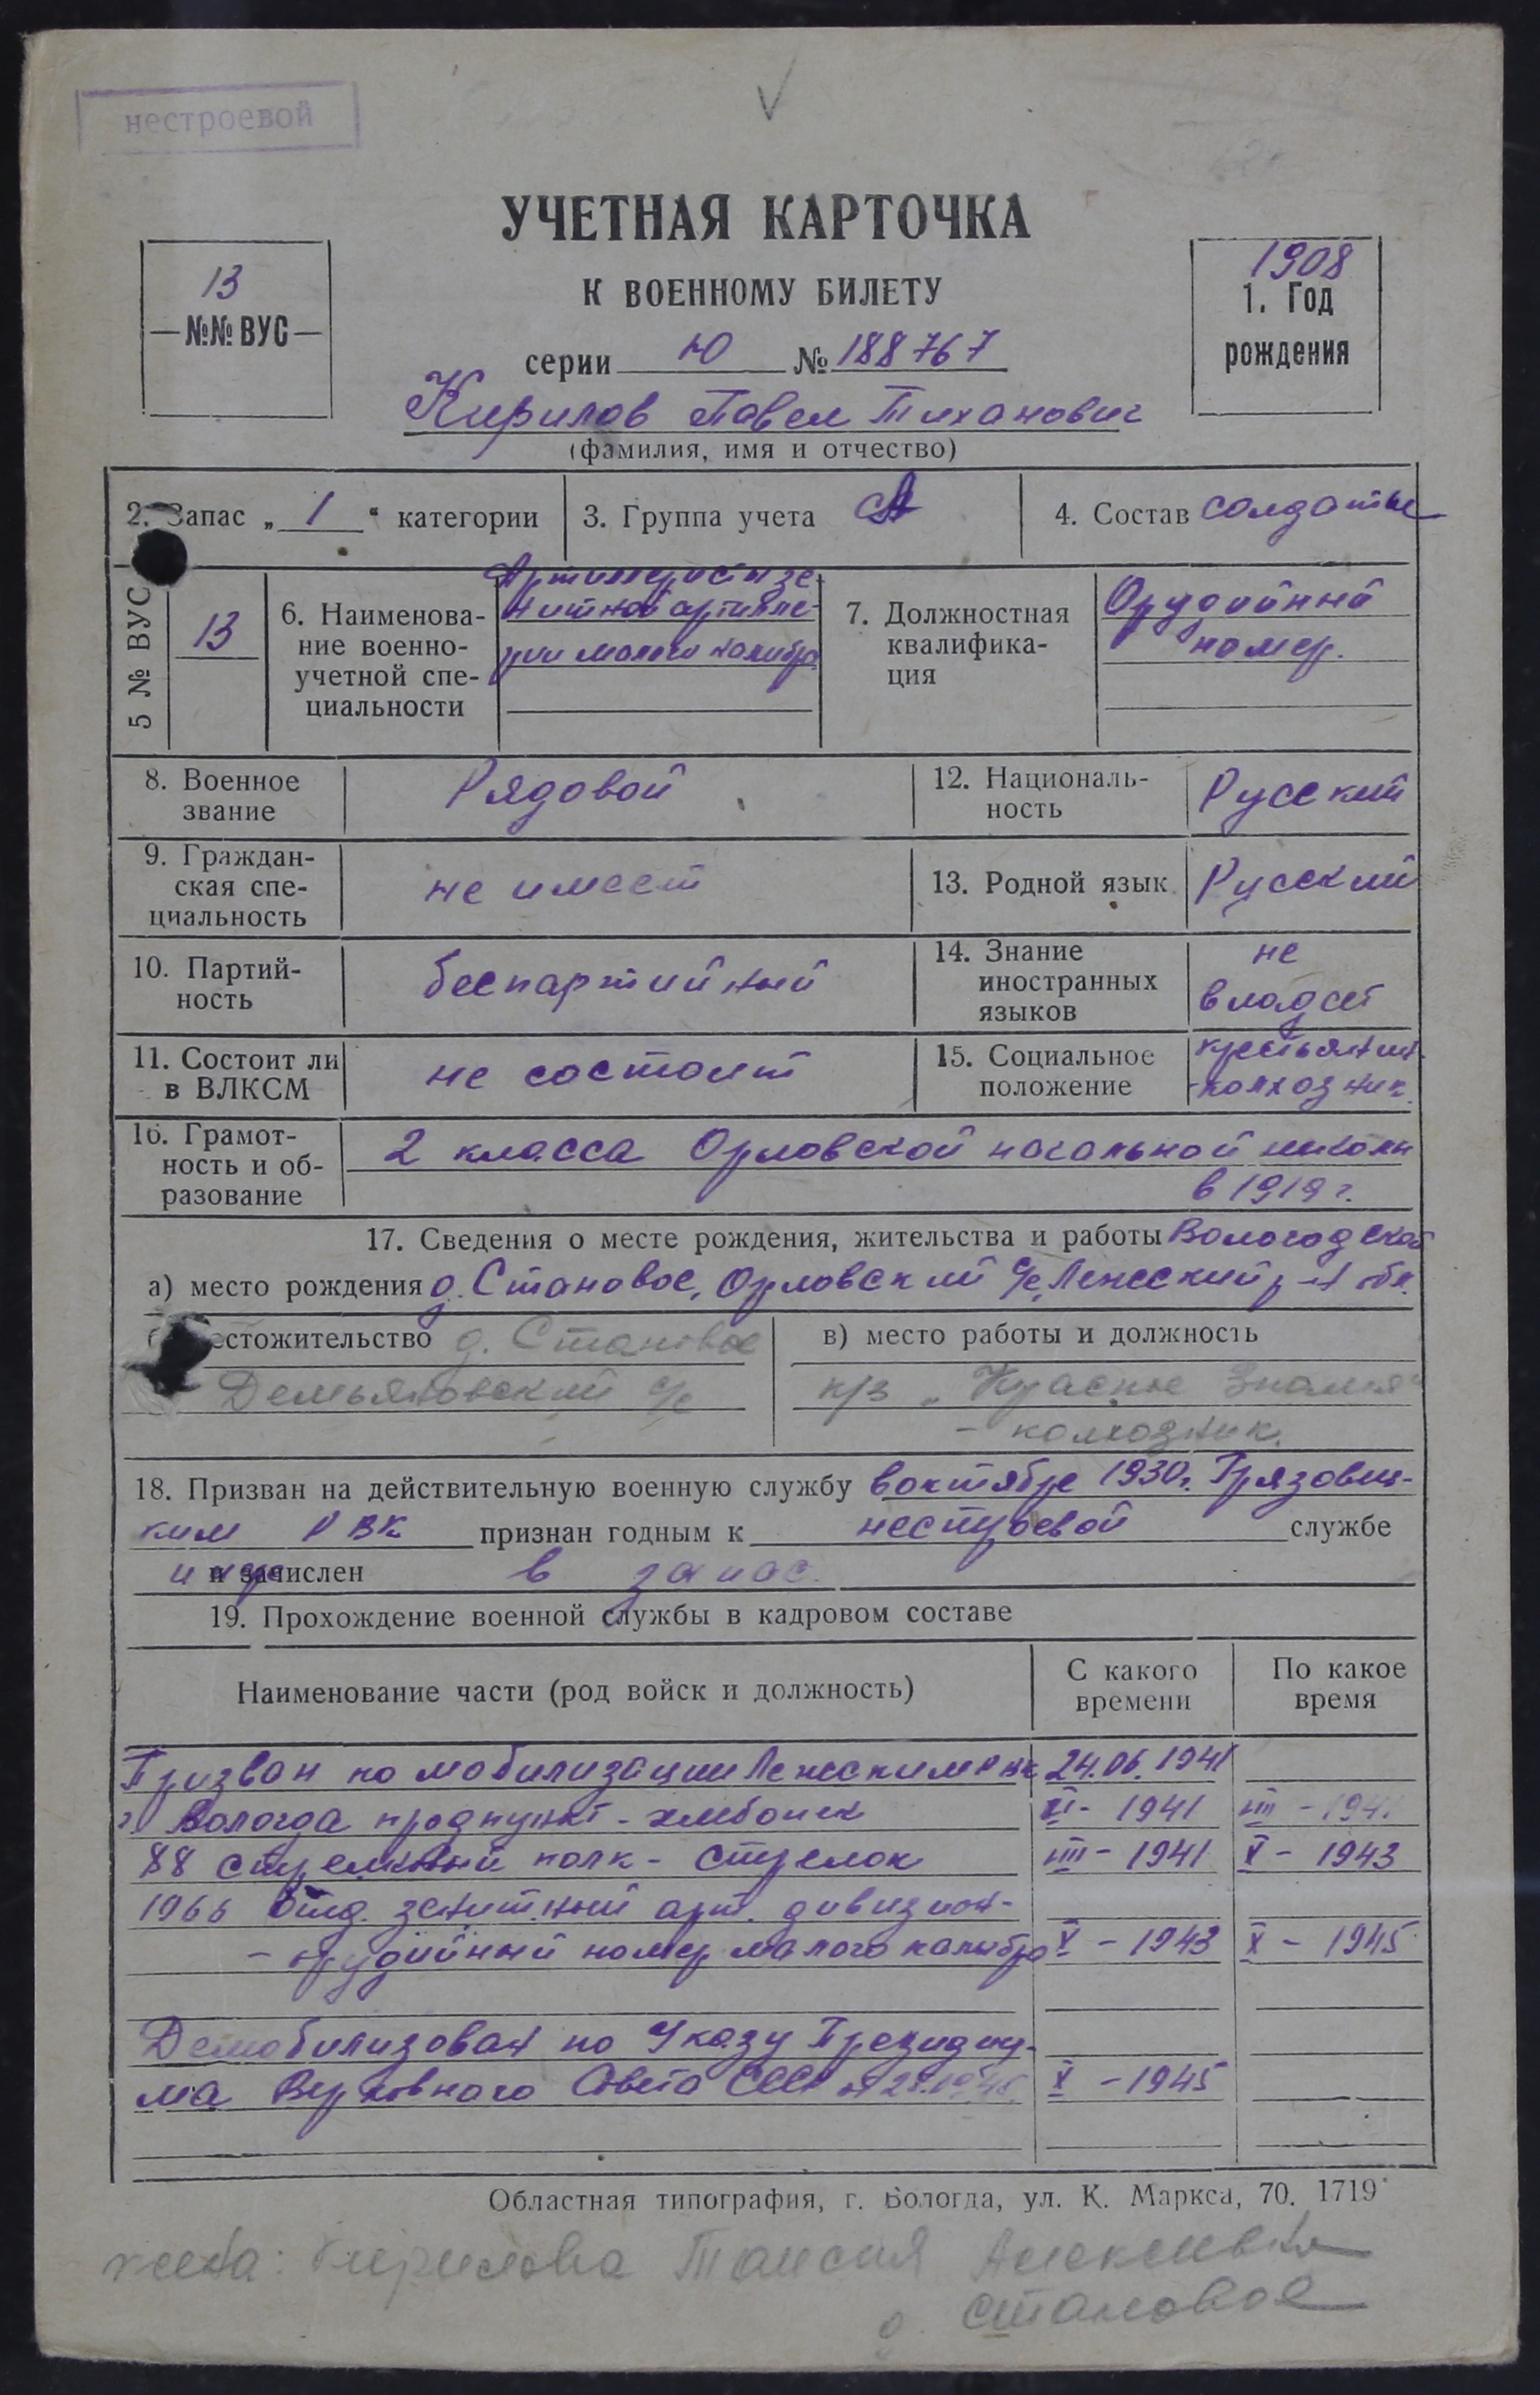 нестроевой
УЧЕТНАЯ КАРТОЧКА
К ВОЕННОМУ БИЛЕТУ
13
—№№ ВУС—
1908
1. Год
рождения
серии Ю № 188767
Кирилов Павел Тиханович
(фамилия, имя и отчество)
2. Запас „ 1 “ категории
3. Группа учета А
4. Состав солдаты
5 № ВУС
13
6. Наименова-
ние военно-
учетной спе-
циальности
Артиллеристы зе-
нитной артилле-
рии малого калибра
7. Должностная
квалифика-
ция
Орудийный
номер.
8. Военное
звание
Рядовой
12. Националь-
ность
Русский
9. Граждан-
ская спе-
циальность
не имеет
13. Родной язык
Русский
10. Партий-
ность
беспартийный
14. Знание
иностранных
языков
не
владеет
11. Состоит ли
в ВЛКСМ
не состоит
15. Социальное
положение
крестьянин-
-колхозник.
16. Грамот-
ность и об-
разование
2 класса Орловской начальной школы
в 1919 г.
17. Сведения о месте рождения, жительства и работы Вологодской
а) место рождения д. Становое, Орловский с/с, Лежский р-н обл.
естожительство д. Становое
Демьяновский с/с
в) место работы и должность
к/з „Красное Знамя“
- колхозник.
18. Призван на действительную военную службу в октябре 1930 г. Грязовец-
ким РВК признан годным к нестроевой службе
и зачислен в запас.
19. Прохождение военной службы в кадровом составе
Наименование части (род войск и должность)
С какого
времени
По какое
время
Призван по мобилизации Лежским РВК 24.06.1941
г. Вологда продпункт - хлебопек VI - 1941 VIII - 1941
88 стрелковый полк - стрелок VIII - 1941 V - 1943
1966 отд. зенитный арт. дивизион-
- орудийный номер малого калибра V - 1943 X - 1945
Демобилизован по Указу Президиу-
ма Верховного Совета СССР от X - 1945
Областная типография, г. Вологда, ул. К. Маркса, 70. 1719
жена: Кирилова Таисия Алексеевна
д. Становое